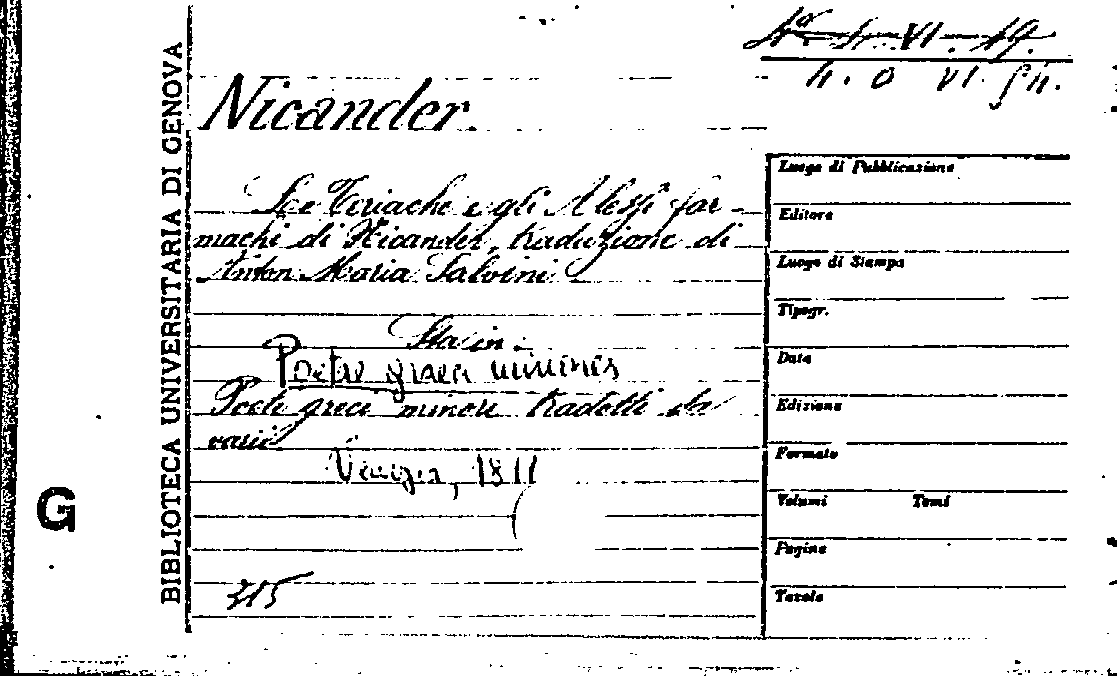 4ª 4. VI. 19.
4. O VI. 54.
Nicander.
Le Teriache e gli Alessifar-
machi di Nicander, traduzione di
Anton Maria Salvini.
Sta in:
Poetae graeci minores
Poeti greci minori tradotti da
varii
Venezia, 1811
315
BIBLIOTECA UNIVERSITARIA DI GENOVA
G
Luogo di Pubblicazione
Editore
Luogo di Stampa
Tipogr.
Data
Edizione
Formato
Volumi Tomi
Pagine
Tavole